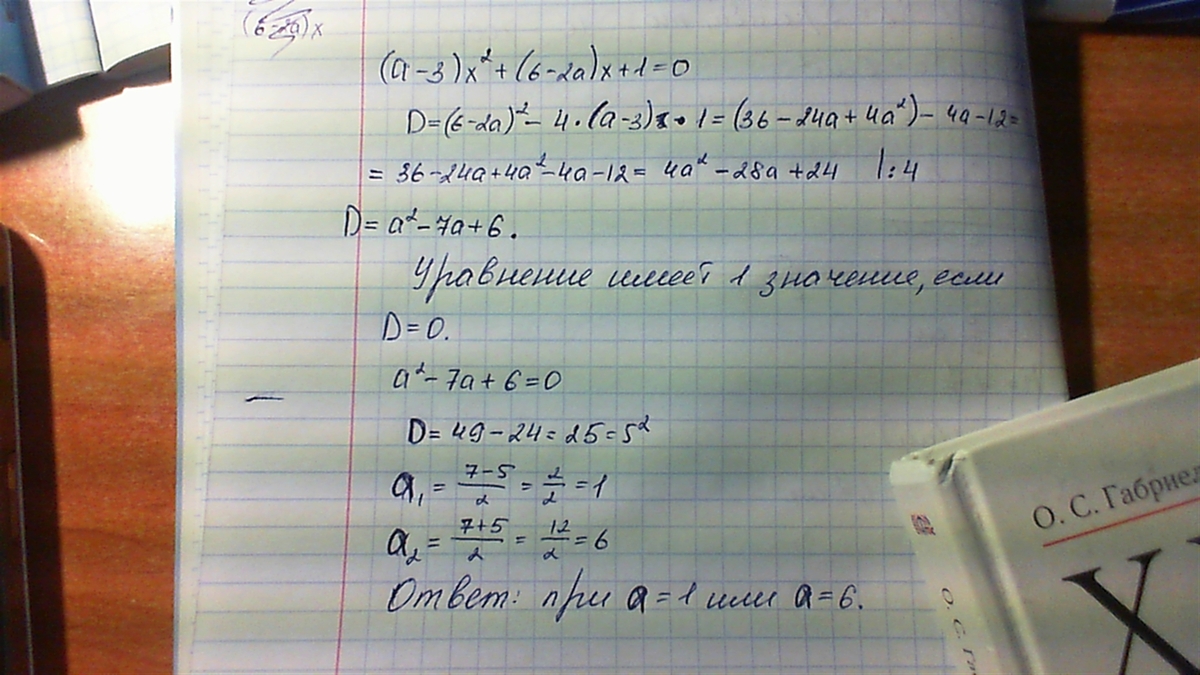 (6-2a)x
(a-3)x²+(6-2a)x+1=0
D=(6-2a)²-4·(a-3)·1=(36-24a+4a²)-4a-12=
=36-24a+4a²-4a-12=4a²-28a+24 |:4
D=a²-7a+6.
Уравнение имеет 1 значение, если
D=0.
a²-7a+6=0
D=49-24=25=5²
a₁=(7-5)/2=2/2=1
a₂=(7+5)/2=12/2=6
Ответ: при a=1 или a=6.
О. С. Габриел
Х
О. С. Га